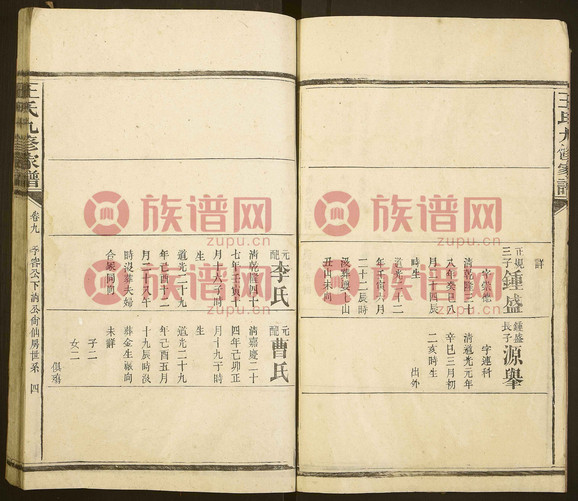 王氏九修家譜
詳
正規三子
鍾盛
八年癸巳八
月十四辰
時生
道光二十二
年壬寅六月
二十二辰時
沒葬
丑山未向
鍾盛長子
源舉
字連科
清道光元年
辛巳三月初
二亥時生
出外
元配
李氏
清乾隆四十
七年壬寅十
時
生
道光二十九
年己酉
月二十八午
時沒葬夫婦
合冢同向
元配
曹氏
清嘉慶二十
四年己卯正
月十九子時
生
道光二十九
年己酉五月
十九辰時沒
葬金生
未詳
子二
女二
俱殤
王氏九修家譜
卷九
四
族谱网
zupu.cn
族谱网
zupu.cn
族谱网
zupu.cn
族谱网
zupu.cn